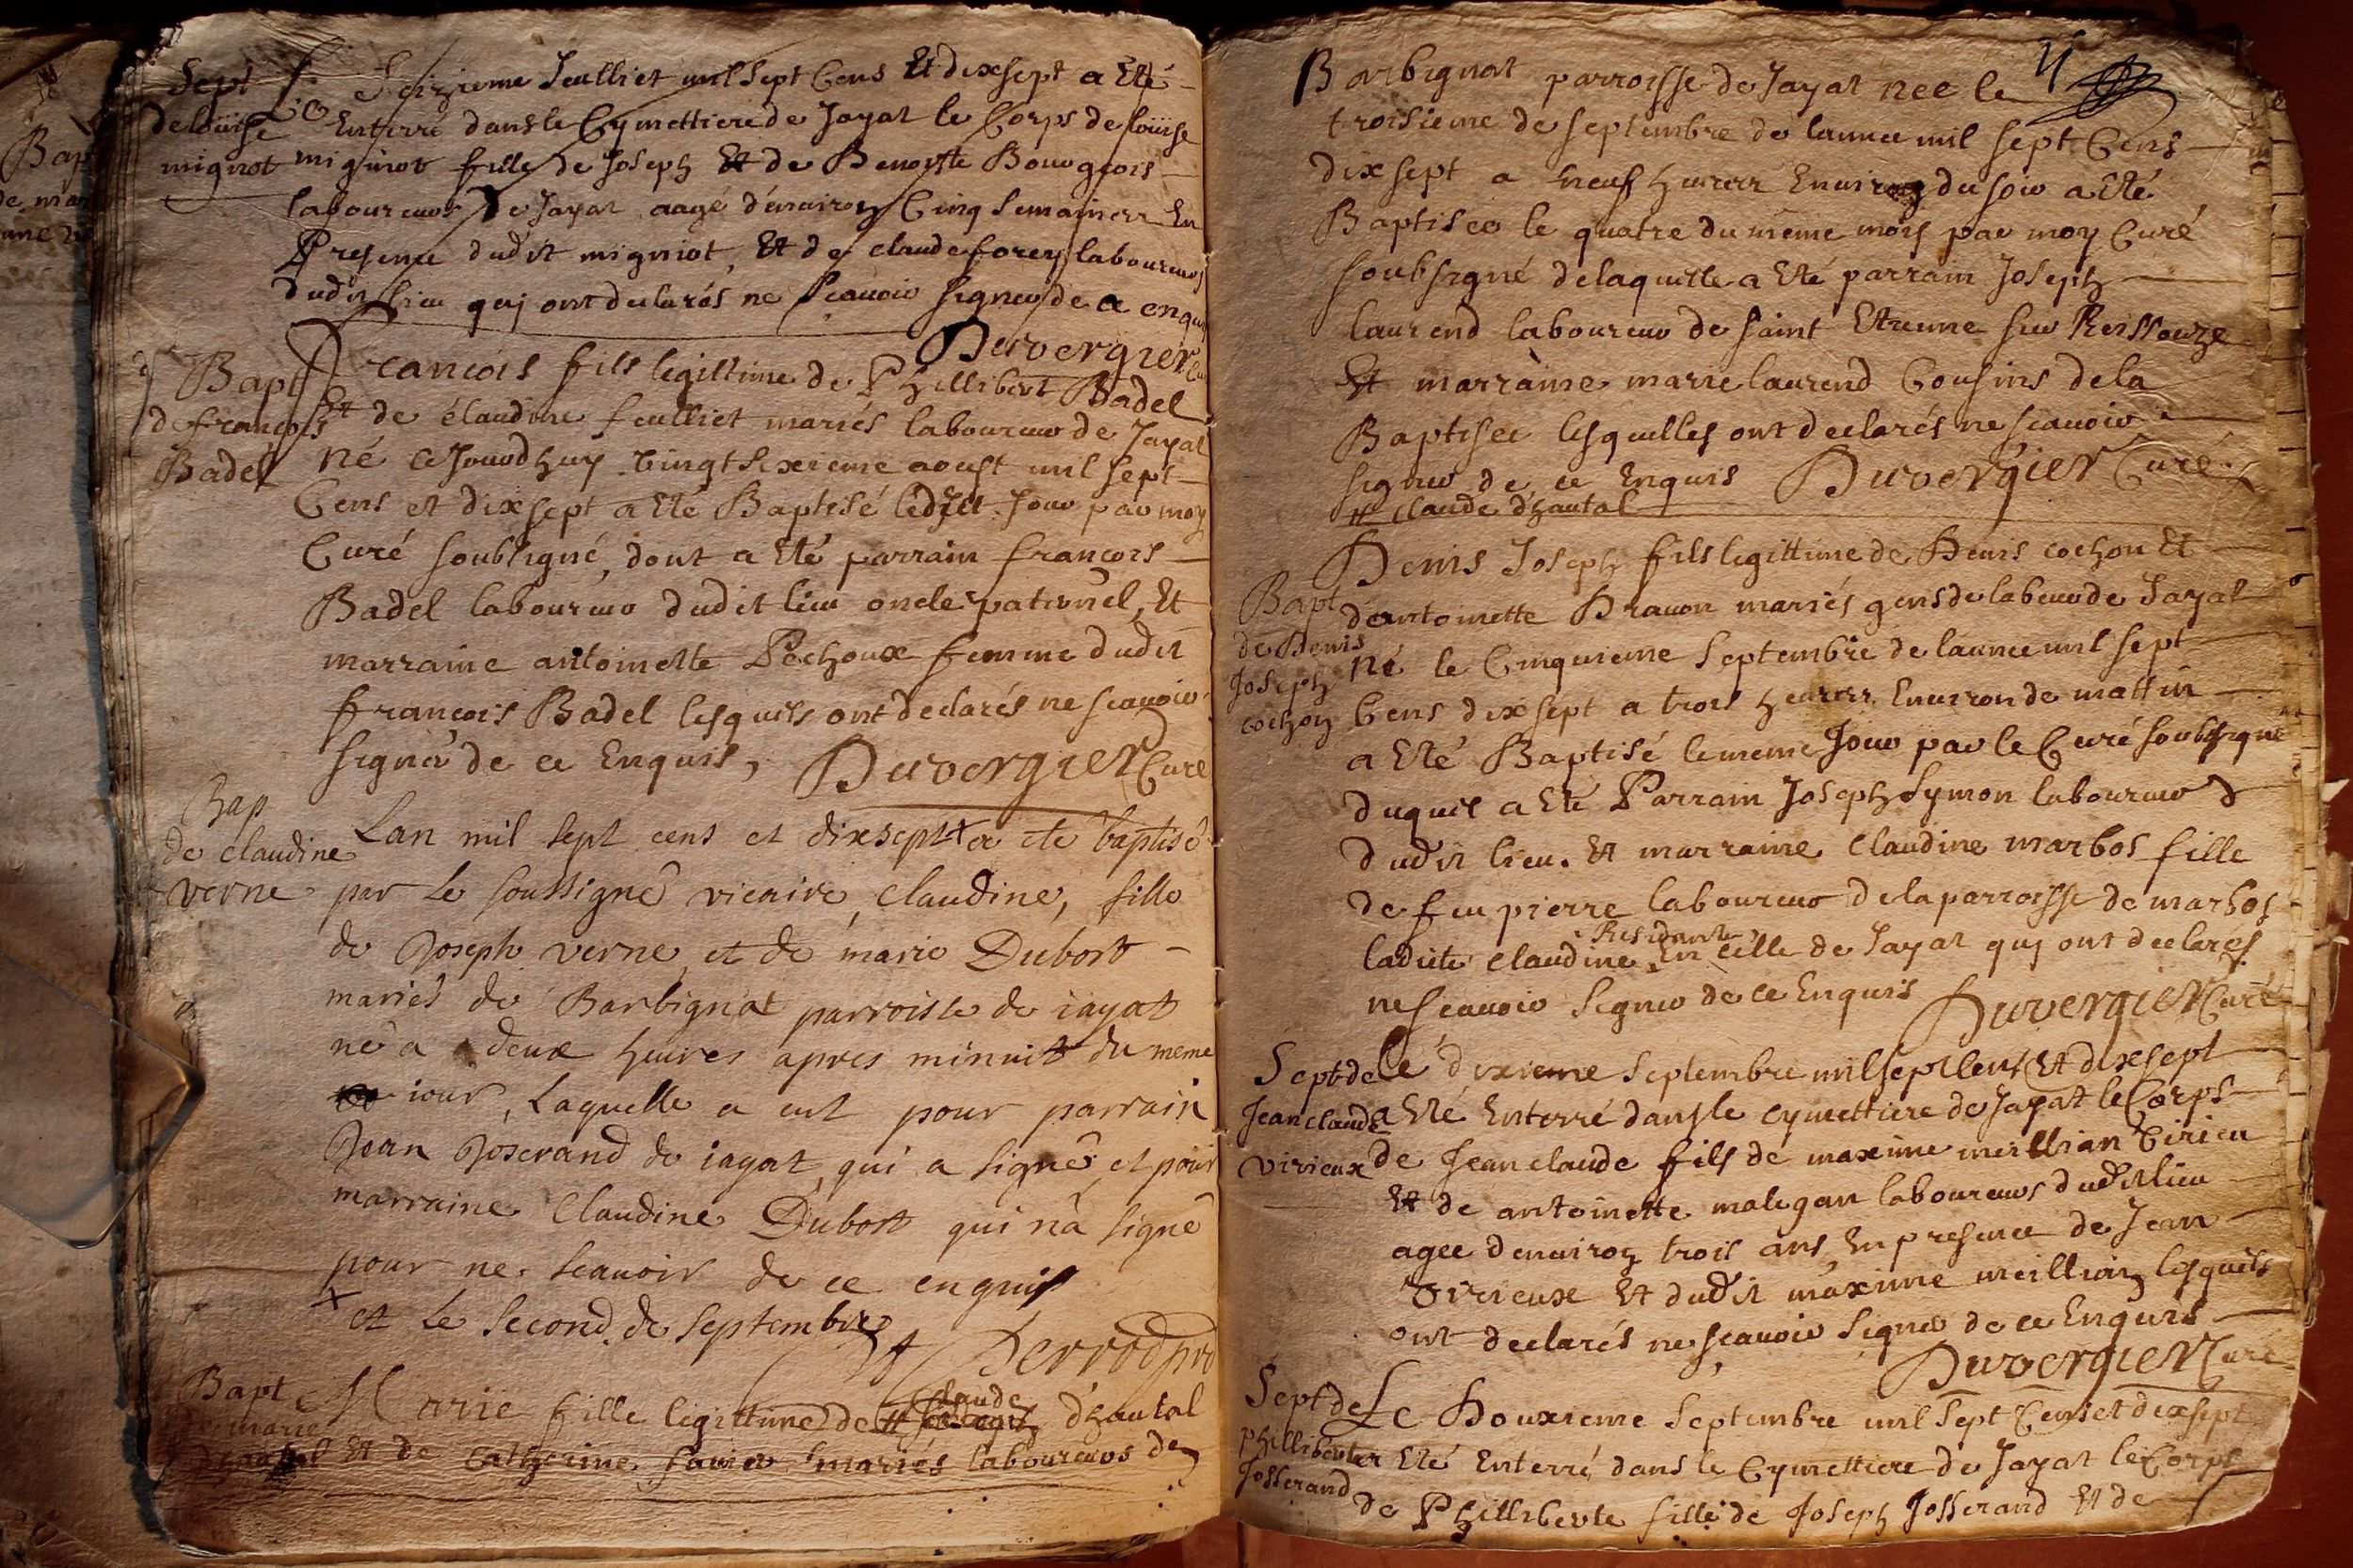 Sept
de loüise
mignot
Seizieme Jeulliet mil sept Cens Et dixsept a Eté
Enterré dans le Cymettiere de Jayat le Corps de loüise
mignot fille de Joseph Et de Benoiste Bourgeois
laboureurs de Jayat aagé d'environ Cinq Semaines En
Presence dudit migniot, Et de claude forey laboureur
dudit lieu qui ont declarés ne scavoir signer de ce enquis
Duvergier Curé
Bapt
de françois
Badel
François fils legittime de Phillibert Badel
Et de claudine feulliet mariés laboureur de Jayat
né ce Jourdhuy vingt sixieme aoust mil sept
Cens et dixsept a Eté Baptisé ledit Jour par moy
Curé soubsigné, dont a Eté parrain francois
Badel laboureur dudit lieu oncle paternel, Et
marraine antoinette Pechoux femme dudit
francois Badel lesquels ont declarés ne scavoir
signer de ce Enquis, Duvergier Curé
Bap
de claudine
verne
Lan mil sept cens et dixsept + a ete baptisé
par le soussigné vicaire, Claudine, fille
de Joseph verne et de marie Dubost
mariés de Barbignat parroisse de iayat
né a deux heures apres minuit du meme
iour, Laquelle a eut pour parrain
Jean Joserand de iayat, qui a signé, et pour
marraine Claudine Dubost qui n'a signé
pour ne scauoir de ce enquis
+ et Le second de septembre
Perrod
Bapt
de marie
dhautal
Marie fille legittime de claude dhautal
Et de Catherine mariés laboureurs de
Barbignat parroisse de Jayat née le
troisieme de septembre de lannee mil sept Cens
dix sept a neuf heures Environ du soir a Eté
Baptisee le quatre du meme mois par moy Curé
soubsigné de laquelle a Eté parrain Joseph
laurend laboureur de saint Etienne sur Reissouze
Et marraine marie laurend Cousins de la
Baptisee lesquelles ont declarés ne scavoir
signer de ce Enquis Duvergier Curé
# claude dhautal
Bapt
de Denis
Joseph
cochon
Denis Joseph fils legittime de Denis cochon Et
d'antoinette Dravon mariés gens de labeur de Jayat
Né le Cinquieme Septembre de lannee mil sept
Cens dixsept a trois heures Environ de mattin
a Eté Baptisé le meme Jour par le Curé soubsigné
duquel a Eté Parrain Joseph Symon laboureur
dudit lieu. Et marraine Claudine marbos fille
de feu pierre laboureur de la parroisse de marbos
ladite claudine Residante En celle de Jayat qui ont declarés
ne scavoir Signer de ce Enquis Duvergier Curé
Sept de
Jean claude
virieux
Le dixieme Septembre mil sept Cens Et dixsept
a Eté Enterré dans le cymettiere de Jayat le Corps
de Jean claude fils de maxime meillian virieu
Et de antoinette malegan laboureurs dudit lieu
agee denviron trois ans En presence de Jean
virieux Et dudit maxime meillian lesquels
ont declarés ne scavoir Signer de ce Enquis
Duvergier Curé
Sept de
phelliberte
Josserand
Le Douxieme Septembre mil Sept Cens et dixsept
a Eté Enterré dans le Cymettiere de Jayat le Corps
de Phelliberte fille de Joseph Josserand Et de